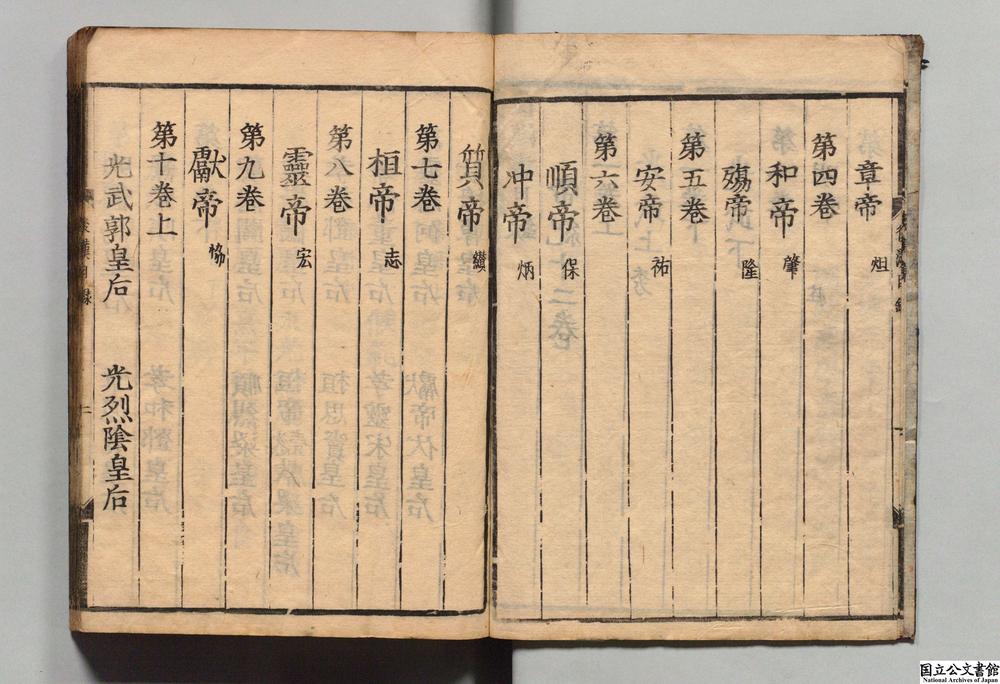 章帝 炟
第四卷
和帝 肇
殤帝 隆
第五卷
安帝 祐
第六卷
順帝 保
冲帝 炳
質帝 纘
第七卷
桓帝 志
第八卷
靈帝 宏
第九卷
獻帝 協
第十卷上
光武郭皇后 光烈陰皇后
国立公文書館
National Archives of Japan